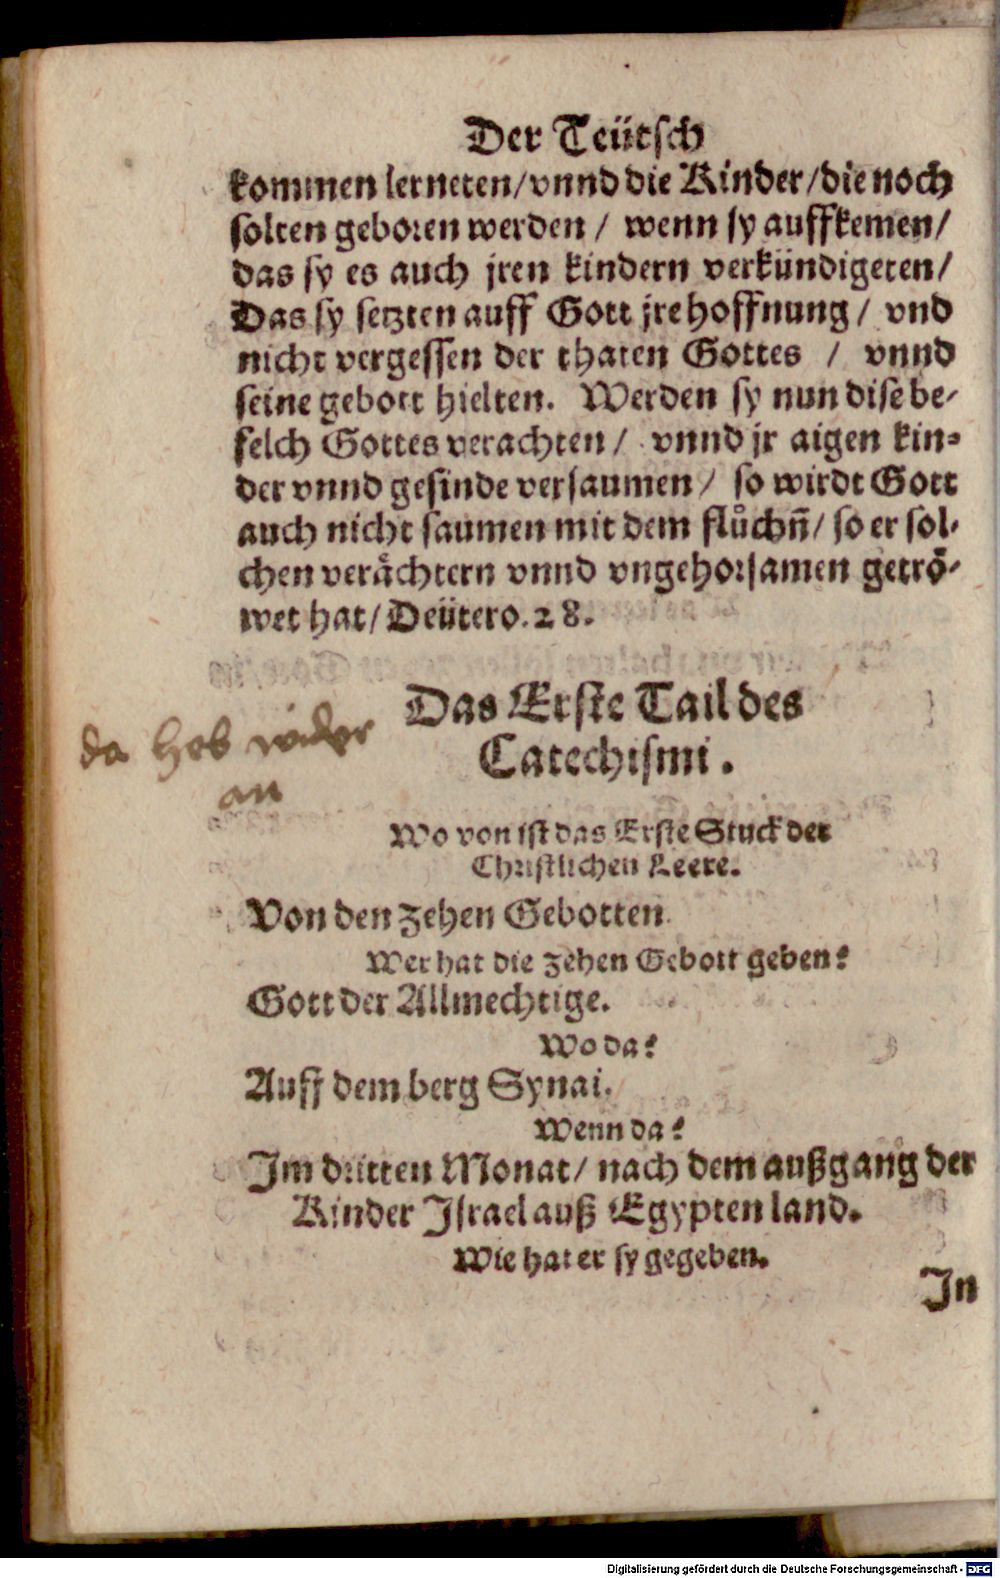 Der Teütsch
kommen lerneten/vnnd die Kinder/die noch
solten geboren werden / wenn sy auffkemen/
das sy es auch jren kindern verkündigeten/
Das sy setzten auff Gott jre hoffnung / vnd
nicht vergessen der thaten Gottes / vnnd
seine gebott hielten. Werden sy nun dise be-
felch Gottes verachten / vnnd jr aigen kin-
der vnnd gesinde versaumen / so wirdt Gott
auch nicht saumen mit dem flůchn̄/ so er sol-
chen verächtern vnnd vngehorsamen getrö-
wet hat/ Deütero. 28.
Das Erste Tail des
Catechismi.
da heb wider
an
Wo von ist das Erste Stuck der
Christlichen Leere.
Von den zehen Gebotten
Wer hat die zehen Gebott geben?
Gott der Allmechtige.
Wo da?
Auff dem berg Synai.
Wenn da?
Im dritten Monat/ nach dem außgang der
Kinder Israel auß Egypten land.
Wie hat er sy gegeben.
In
Digitalisierung gefördert durch die Deutsche Forschungsgemeinschaft - DFG